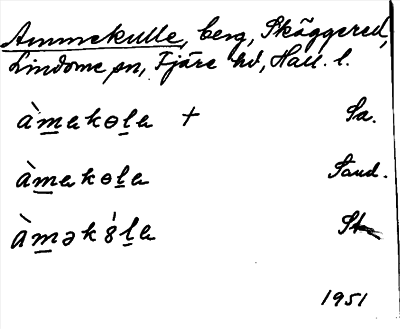 Ammekulle, berg, Skäggered,
Lindome sn, Fjäre hd, Hall. l.
àmakɵla + Sa.
àmakɵla Sand.
àməkȣ́la
1951